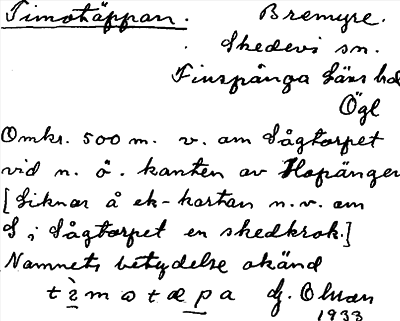 Timotäppan. Bremyre.
Skedevi sn.
Finspånga läns hd
Ögl
Omkr. 500 m. v. om Sågtorpet
vid n. ö. kanten av Hopängen
[Liknar å ek-kartan n.v. om
S i Sågtorpet en skedkrok.]
Namnets betydelse okänd
t ì m o t æ p a G. Olson
1933